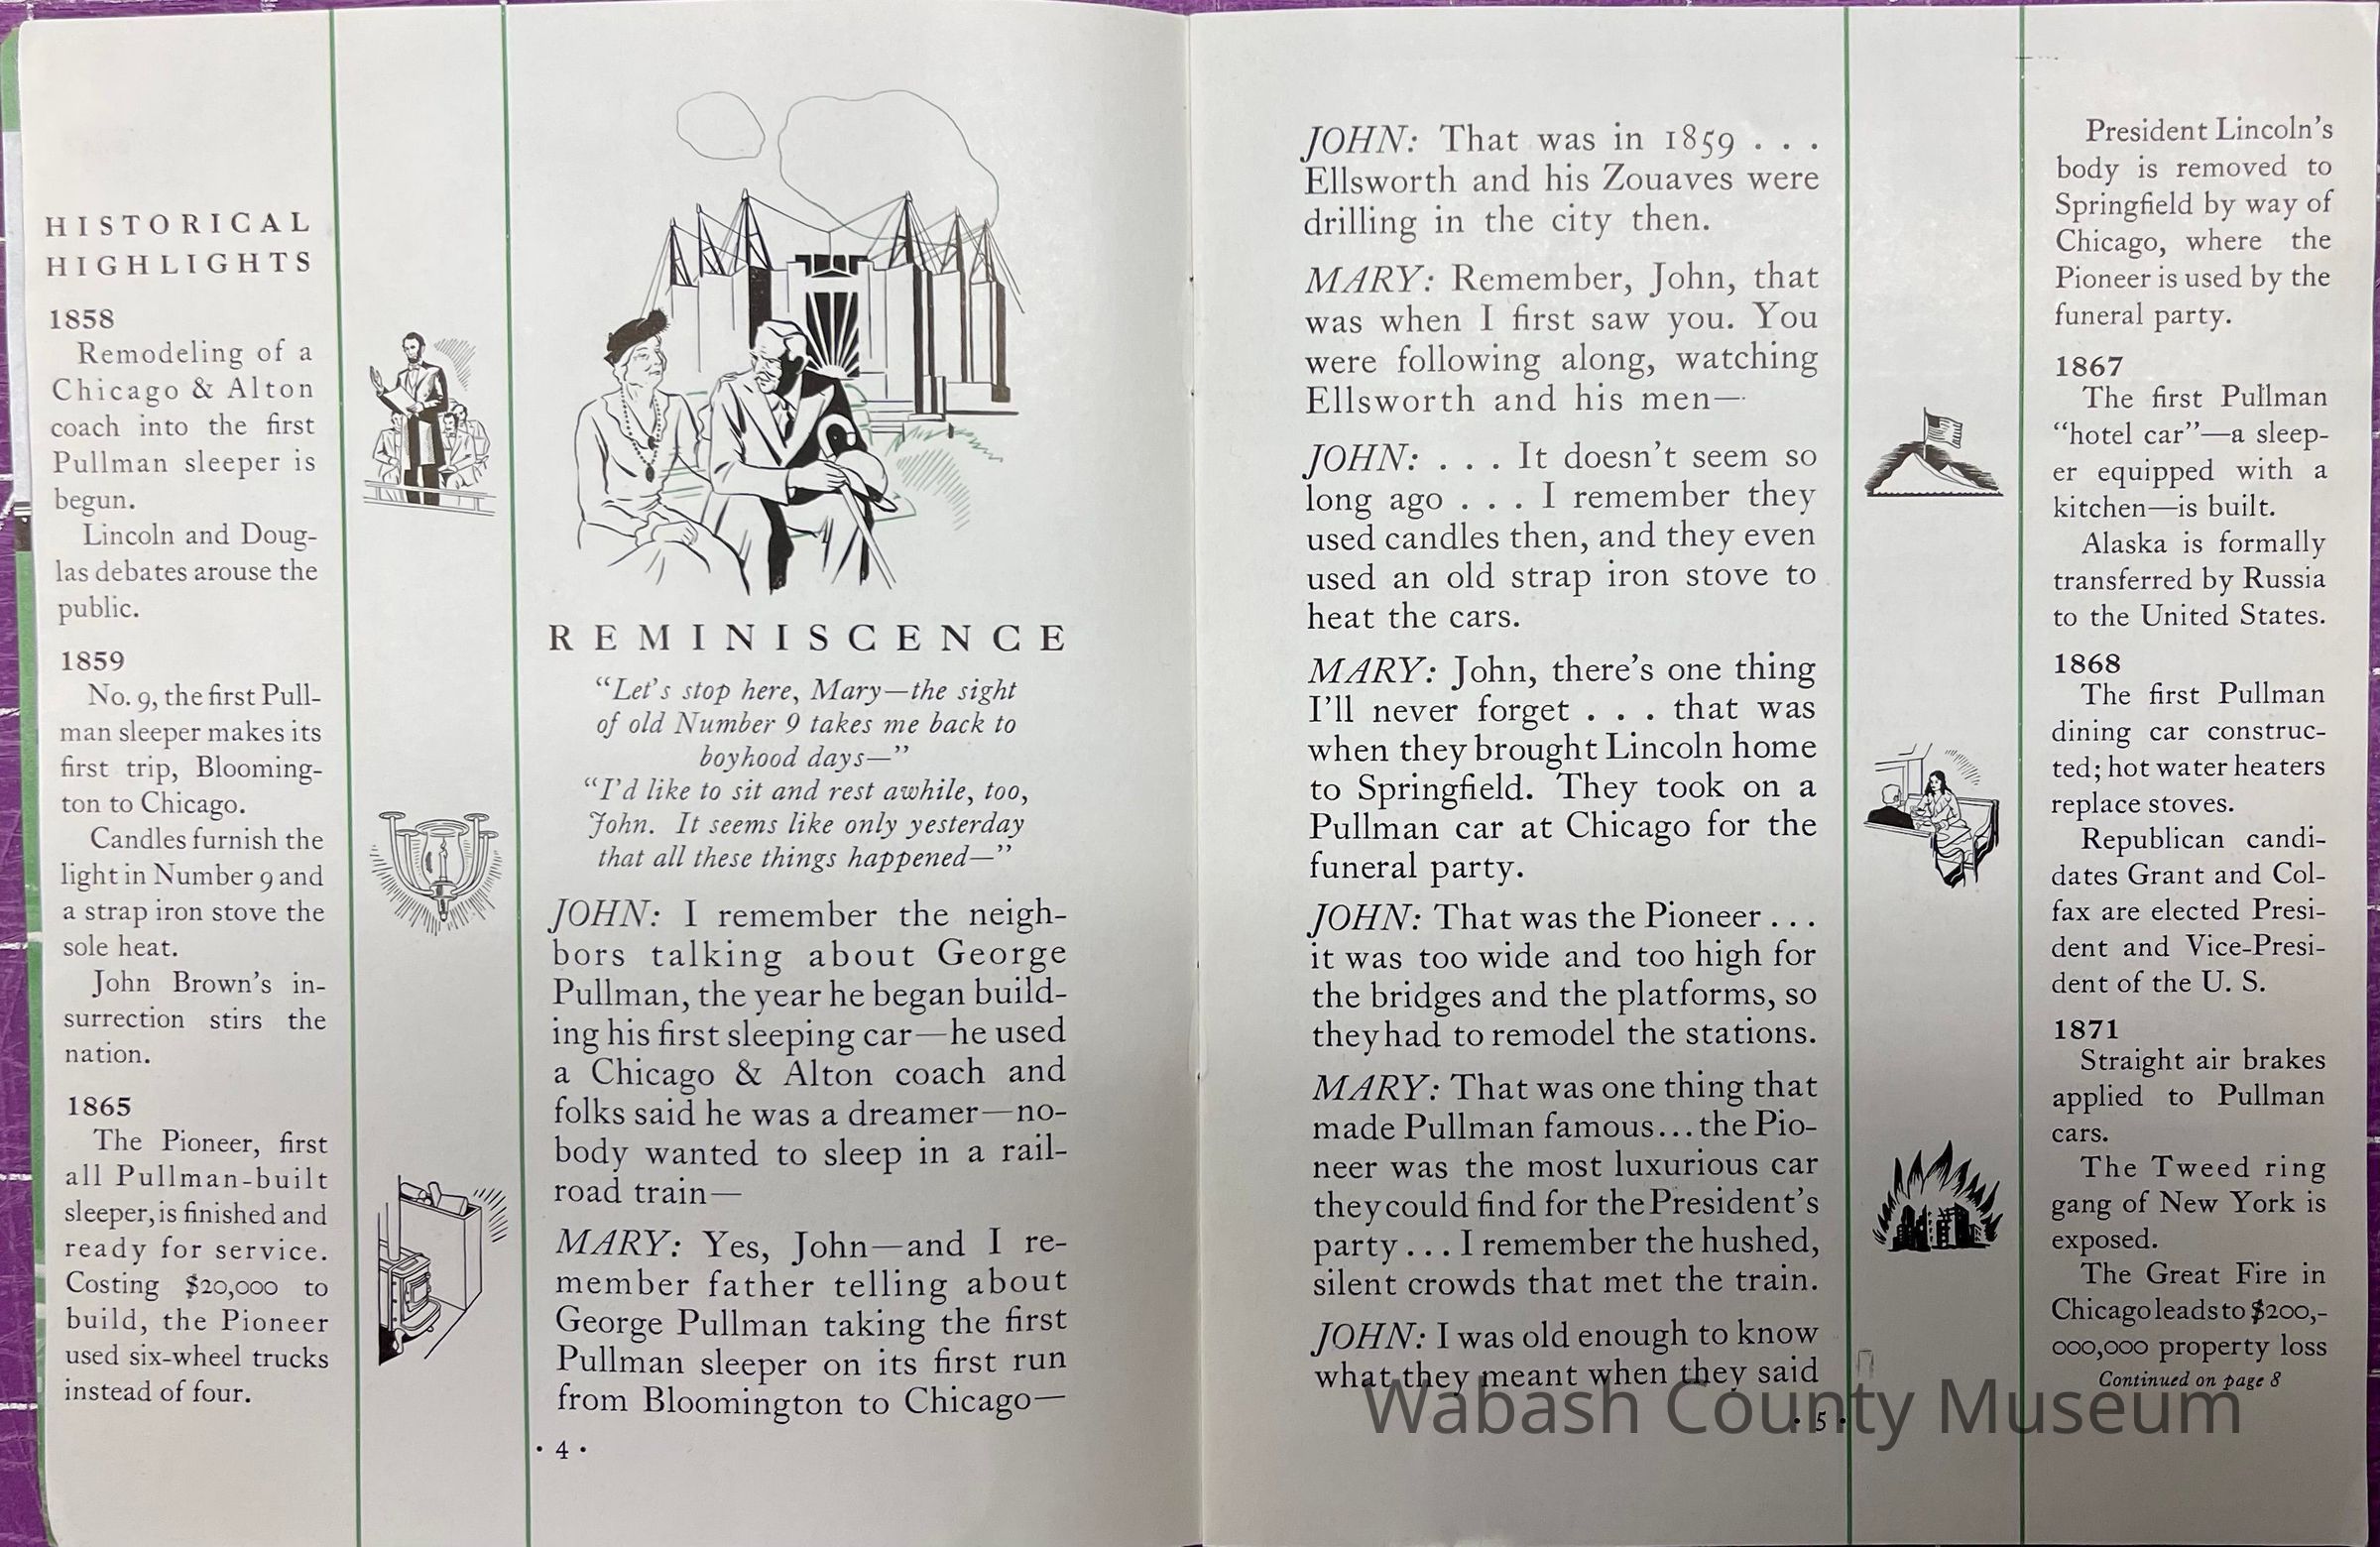 HISTORICAL
HIGHLIGHTS
1858
Remodeling of a
Chicago & Alton
coach into the first
Pullman sleeper is
begun.
Lincoln and Doug-
las debates arouse the
public.
1859
No. 9, the first Pull-
man sleeper makes its
first trip, Blooming-
ton to Chicago.
Candles furnish the
light in Number 9 and
a strap iron stove the
sole heat.
John Brown's in-
surrection stirs the
nation.
1865
The Pioneer, first
all Pullman-built
sleeper, is finished and
ready for service.
Costing $20,000 to
build, the Pioneer
used six-wheel trucks
instead of four.
REMINISCENCE
“Let's stop here, Mary—the sight
of old Number 9 takes me back to
boyhood days—”
“I'd like to sit and rest awhile, too,
John. It seems like only yesterday
that all these things happened—”
JOHN: I remember the neigh-
bors talking about George
Pullman, the year he began build-
ing his first sleeping car—he used
a Chicago & Alton coach and
folks said he was a dreamer—no-
body wanted to sleep in a rail-
road train—
MARY: Yes, John—and I re-
member father telling about
George Pullman taking the first
Pullman sleeper on its first run
from Bloomington to Chicago—
· 4 ·
JOHN: That was in 1859 . . .
Ellsworth and his Zouaves were
drilling in the city then.
MARY: Remember, John, that
was when I first saw you. You
were following along, watching
Ellsworth and his men—
JOHN: . . . It doesn't seem so
long ago . . . I remember they
used candles then, and they even
used an old strap iron stove to
heat the cars.
MARY: John, there's one thing
I'll never forget . . . that was
when they brought Lincoln home
to Springfield. They took on a
Pullman car at Chicago for the
funeral party.
JOHN: That was the Pioneer . . .
it was too wide and too high for
the bridges and the platforms, so
they had to remodel the stations.
MARY: That was one thing that
made Pullman famous...the Pio-
neer was the most luxurious car
they could find for the President's
party . . . I remember the hushed,
silent crowds that met the train.
JOHN: I was old enough to know
what they meant when they said
· 5 ·
President Lincoln's
body is removed to
Springfield by way of
Chicago, where the
Pioneer is used by the
funeral party.
1867
The first Pullman
“hotel car”—a sleep-
er equipped with a
kitchen—is built.
Alaska is formally
transferred by Russia
to the United States.
1868
The first Pullman
dining car construc-
ted; hot water heaters
replace stoves.
Republican candi-
dates Grant and Col-
fax are elected Presi-
dent and Vice-Presi-
dent of the U. S.
1871
Straight air brakes
applied to Pullman
cars.
The Tweed ring
gang of New York is
exposed.
The Great Fire in
Chicago leads to $200,-
000,000 property loss
Continued on page 8
Wabash County Museum